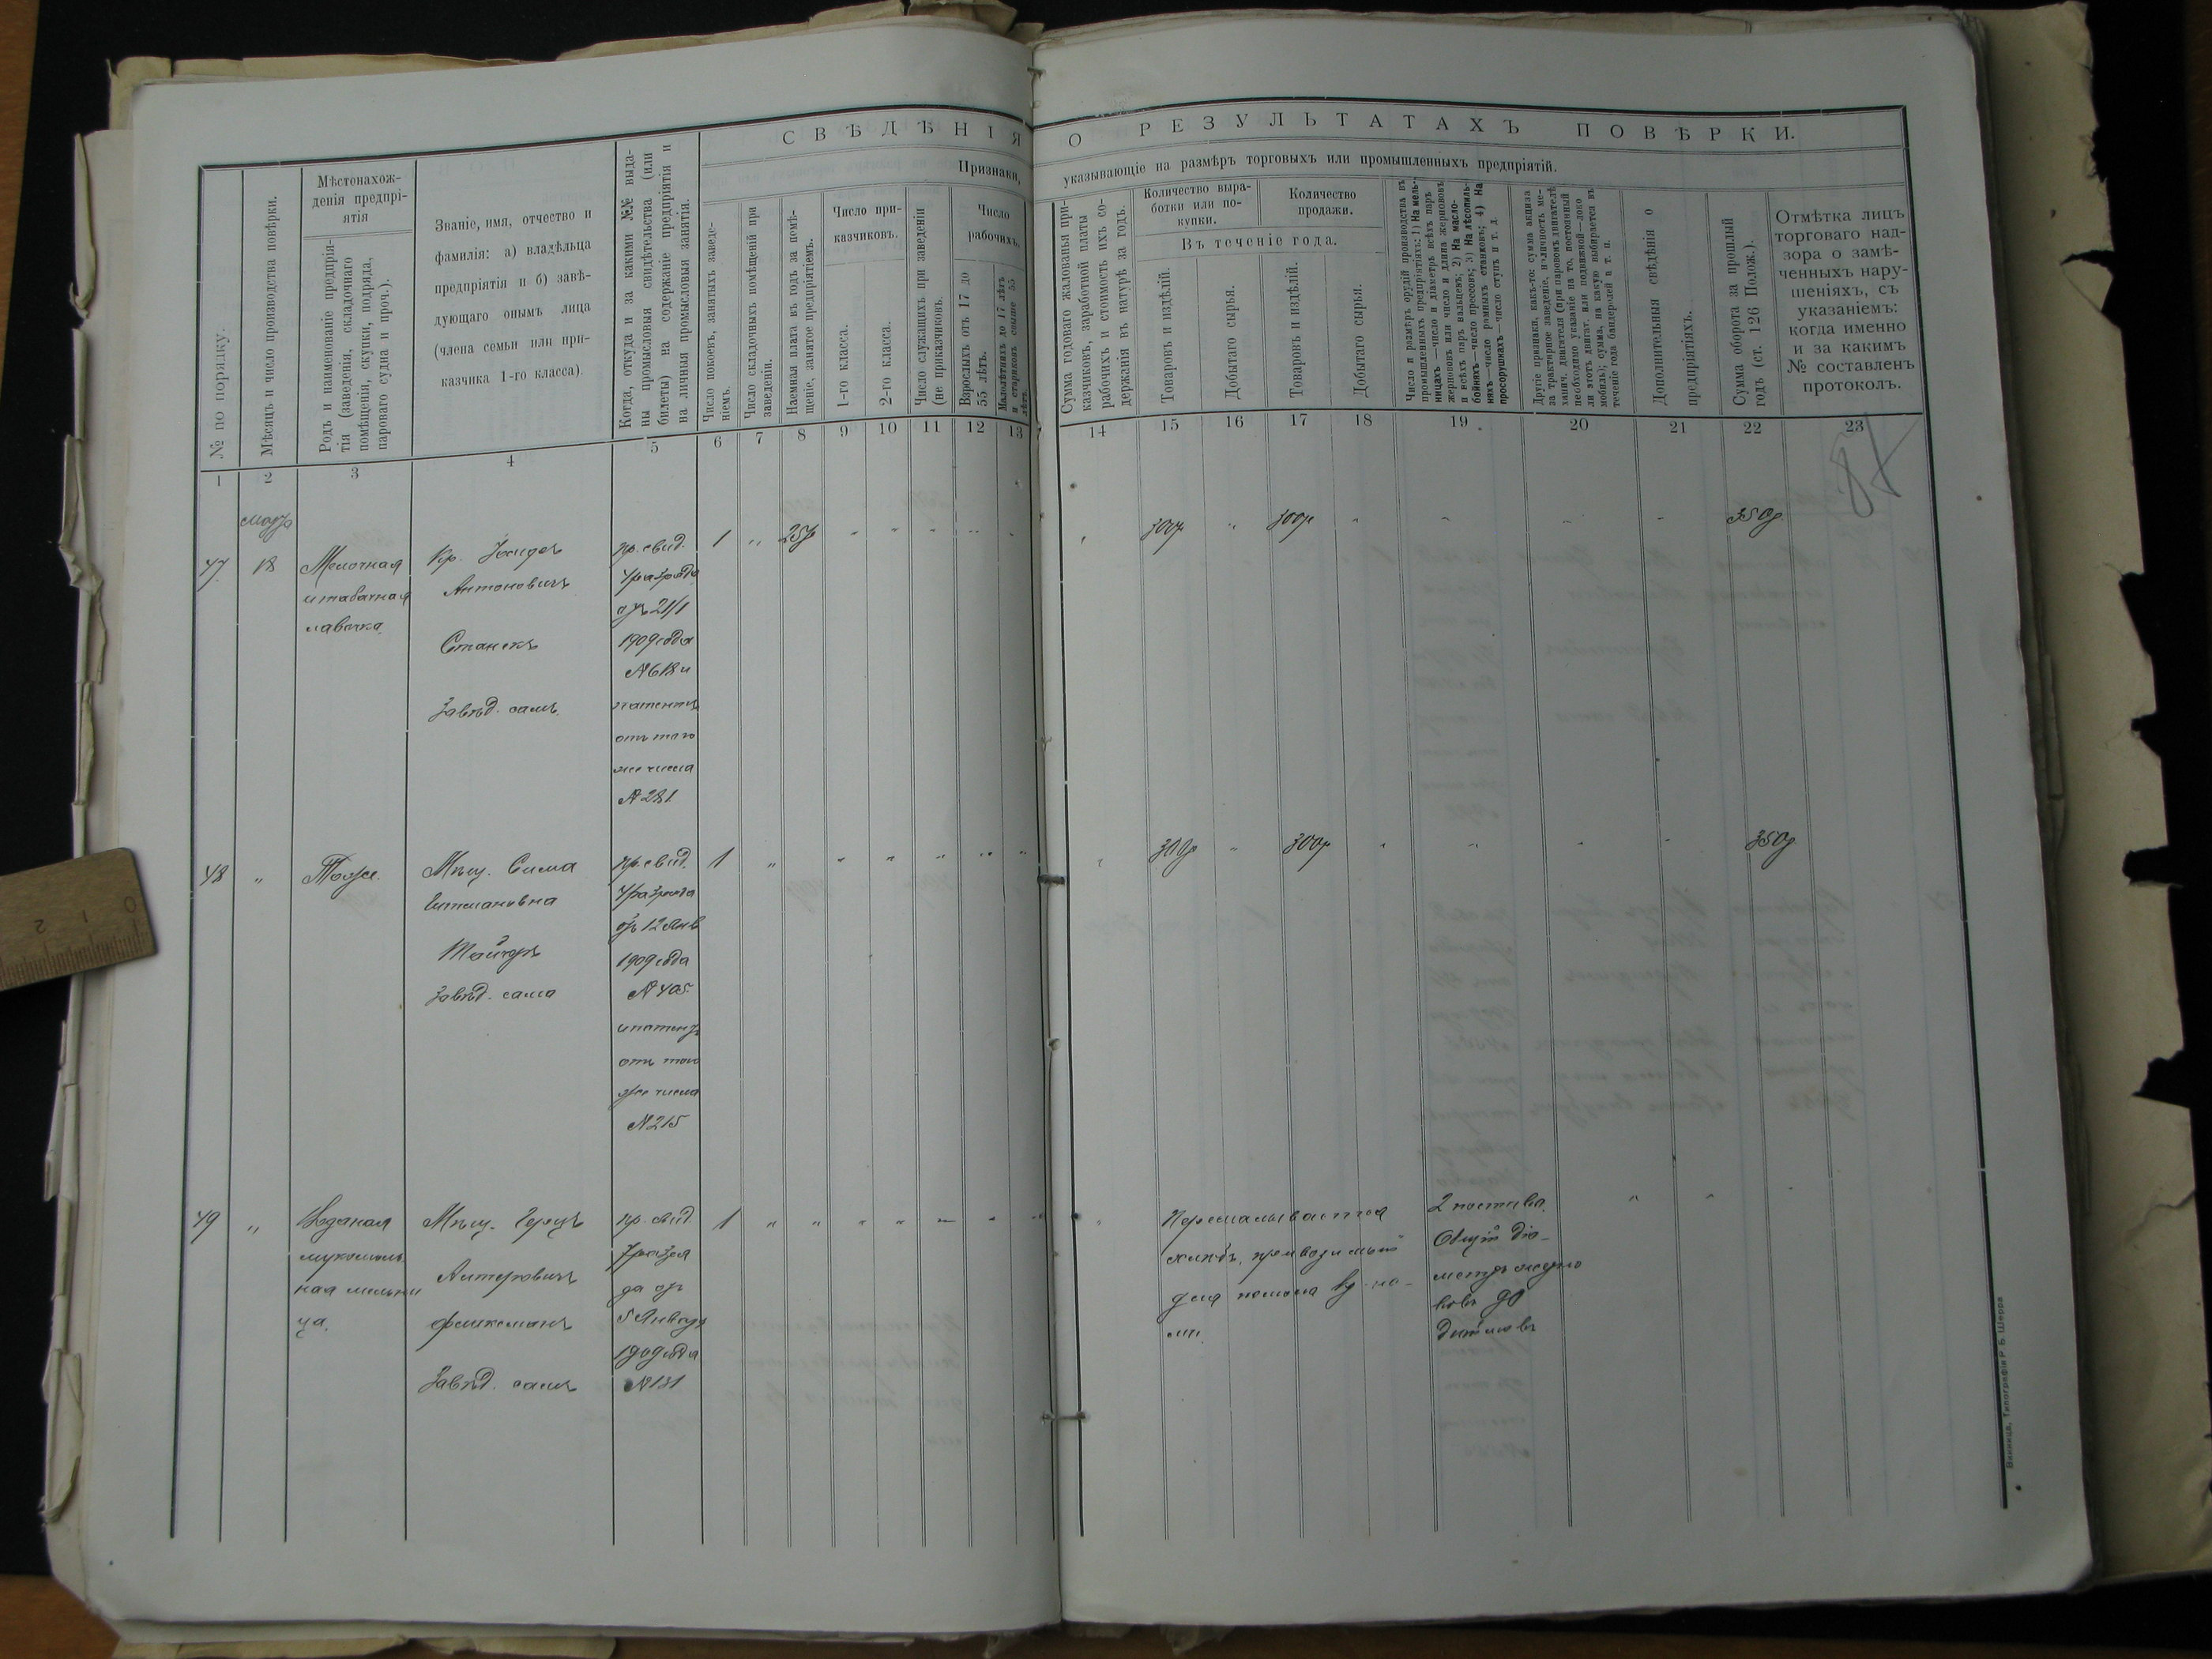 СВѢДѢНІЯ О РЕЗУЛЬТАТАХЪ ПОВѢРКИ.
Признаки, указывающіе на размѣръ торговыхъ или промышленныхъ предпріятій.
№ по порядку.
Мѣсяцъ и число производства повѣрки.
Мѣстонахож-
денія предпрі-
ятія
Родъ и наименованіе предпрія-
тія (заведенія, складочнаго
помѣщенія, скупки, подряда,
парового судна и проч.).
Званіе, имя, отчество и
фамилія: а) владѣльца
предпріятія и б) завѣ-
дующаго онымъ лица
(члена семьи или при-
казчика 1-го класса).
Когда, откуда и за какими №№ выда-
ны промысловыя свидѣтельства (или
билеты) на содержаніе предпріятія и
на личныя промысловыя занятія.
Число покоевъ, занятыхъ заведе-
ніемъ.
Число складочныхъ помѣщеній при
заведеніи.
Наемная плата въ годъ за помѣ-
щеніе, занятое предпріятіемъ.
Число при-
казчиковъ.
1-го класса.
2-го класса.
Число служащихъ при заведеніи
(не приказчиковъ.
Число
рабочихъ.
Взрослыхъ отъ 17 до
55 лѣтъ.
Малолѣтнихъ до 17 лѣтъ
и стариковъ свыше 55
лѣтъ.
Сумма годового жалованья при-
казчиковъ, заработной платы
рабочихъ и стоимость ихъ со-
держанія въ натурѣ за годъ.
Количество выра-
ботки или по-
купки.
Количество
продажи.
Въ теченіе года.
Товаровъ и издѣлій.
Добытаго сырья.
Товаровъ и издѣлій.
Добытаго сырья.
Число и размѣръ орудій производства въ
промышленныхъ предпріятіяхъ: 1) На мель-
ницахъ—число и діаметръ всѣхъ паръ
жернововъ или число и длина жернововъ
и всѣхъ паръ вальцевъ; 2) На масло-
бойняхъ—число прессовъ; 3) На лѣсопиль-
няхъ—число рамныхъ станковъ; 4) На
просорушкахъ—число ступъ и т. д.
Другіе признаки, какъ-то: сумма акциза
за трактирное заведеніе, наличность ме-
ханич. двигателя (при паровомъ двигателѣ
необходимо указаніе на то, постоянный
ли этотъ двигат. или подвижной—локо
мобиль); сумма, на какую выбирается въ
теченіе года бандеролей и т. п.
Дополнительныя свѣдѣнія о
предпріятіяхъ.
Сумма оборота за прошлый
годъ (ст. 126 Полож.).
Отмѣтка лицъ
торговаго над-
зора о замѣ-
ченныхъ нару-
шеніяхъ, съ
указаніемъ:
когда именно
и за какимъ
№ составленъ
протоколъ.
1 2 3 4 5 6 7 8 9 10 11 12 13 14 15 16 17 18 19 20 21 22 23
Марта
47 18 Мелочная
и табачная
лавочка.
Кр.
Антоновичъ
Станекъ
Завѣд. самъ.
пр. свид.
4 разряда
отъ 21/1
1909 года
№ 618 и
патентъ
отъ того
же числа
№ 281
1 " 25р " " " " " " 300р " 300р " " " " 350р
48 " Тоже.
Мѣщ. Сима
Завѣд. сама
пр. свид.
4 разряда
отъ 12 Янв
1909 года
№ 405
и патентъ
отъ того
же числа
№ 215
1 " " " " " " " 300р " 300р " " " " 350р
49 " Водяная
мукомоль
ная мельни
ца.
Мѣщ. Герцъ
Завѣд. самъ
пр. свид.
7 разря
да отъ
5 Января
1909 года
№ 131
1 " " " " " " " "
Перемалывается
хлѣбъ, привозимый
для помола
2 постава.
Общій діа-
метръ жерно
вовъ 90
дюймовъ
" " "
Винница, Типографія Р. Б. Шерра